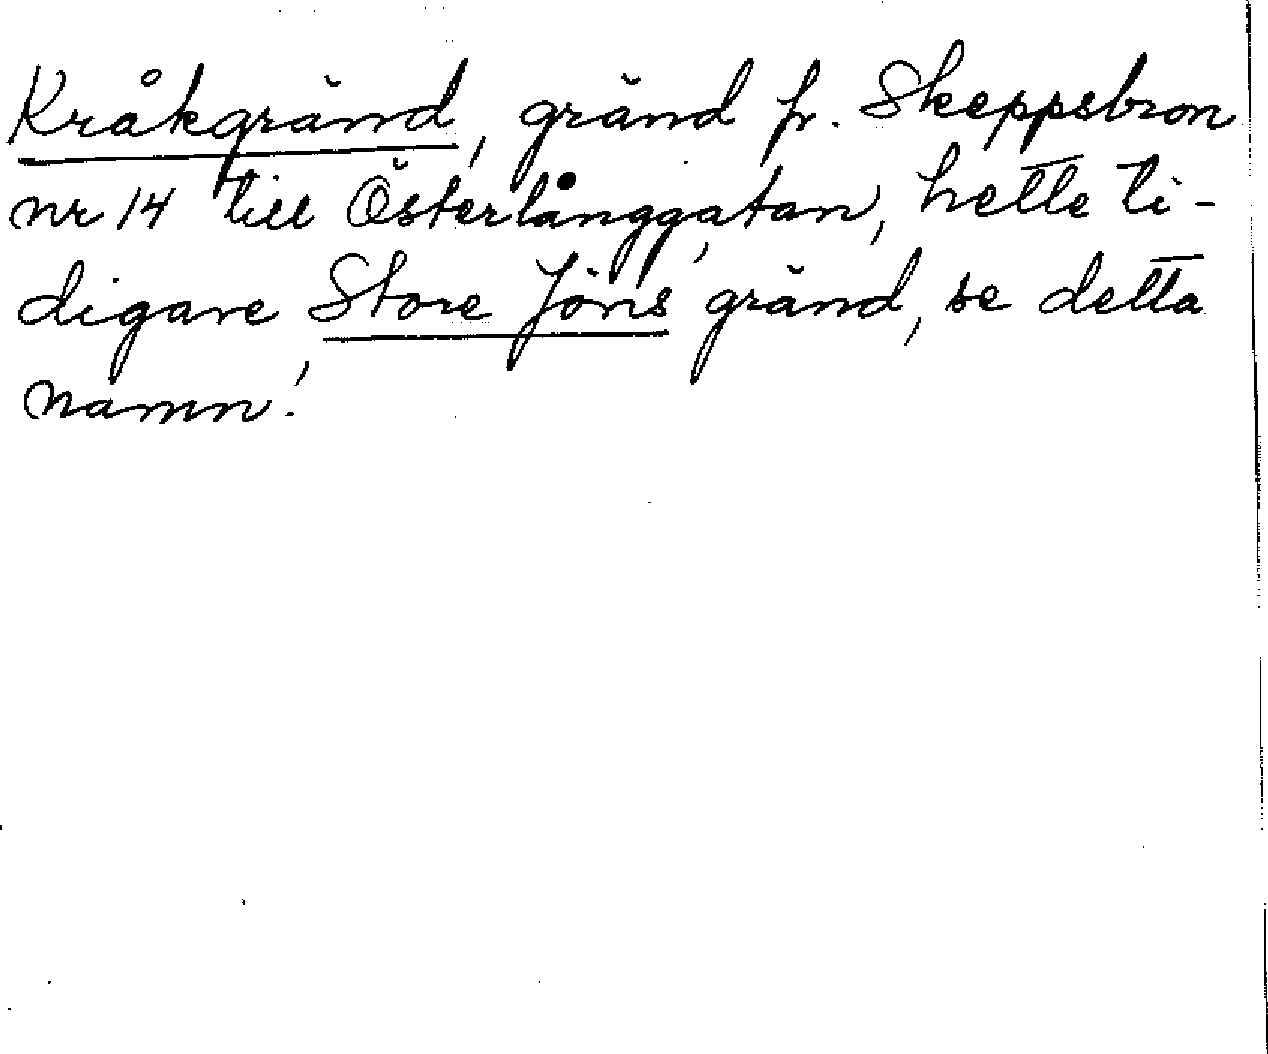 Kråkgränd, gränd fr. Skeppsbron
nr 14 till Österlånggatan, hette ti-
digare Store Jöns' gränd, se detta
namn!